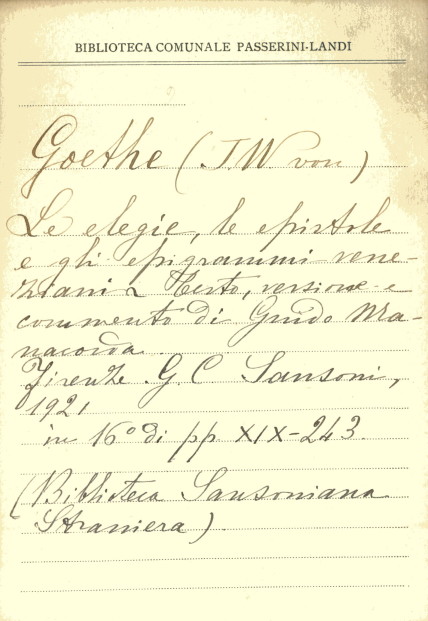 BIBLIOTECA COMUNALE PASSERINI-LANDI
Goethe (J. W von)
Le elegie, le epistole
e gli epigrammi vene-
ziani Testo, versione e
commento di Guido Ma-
nacorda.
Firenze G. C Sansoni,
1921
in 16° di pp XIX-243.
(Biblioteca Sansoniana
Straniera).